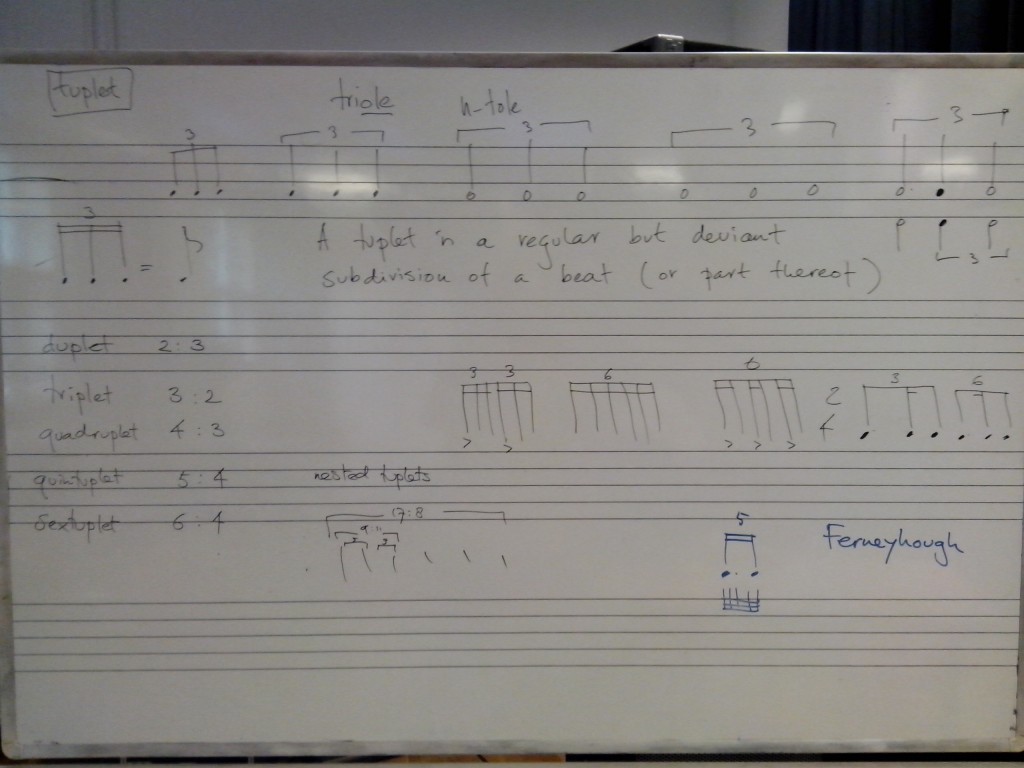 tuplet
triole n-tole
3 3 3 3 3
3
=
A tuplet is a regular but deviant
subdivision of a beat (or part thereof)
3
duplet 2:3
3 3 6 6 3 6
triplet 3:2
2
4
quadruplet 4:3
quintuplet 5:4 nested tuplets
sextuplet 6:4
17:8
5
Ferneyhough